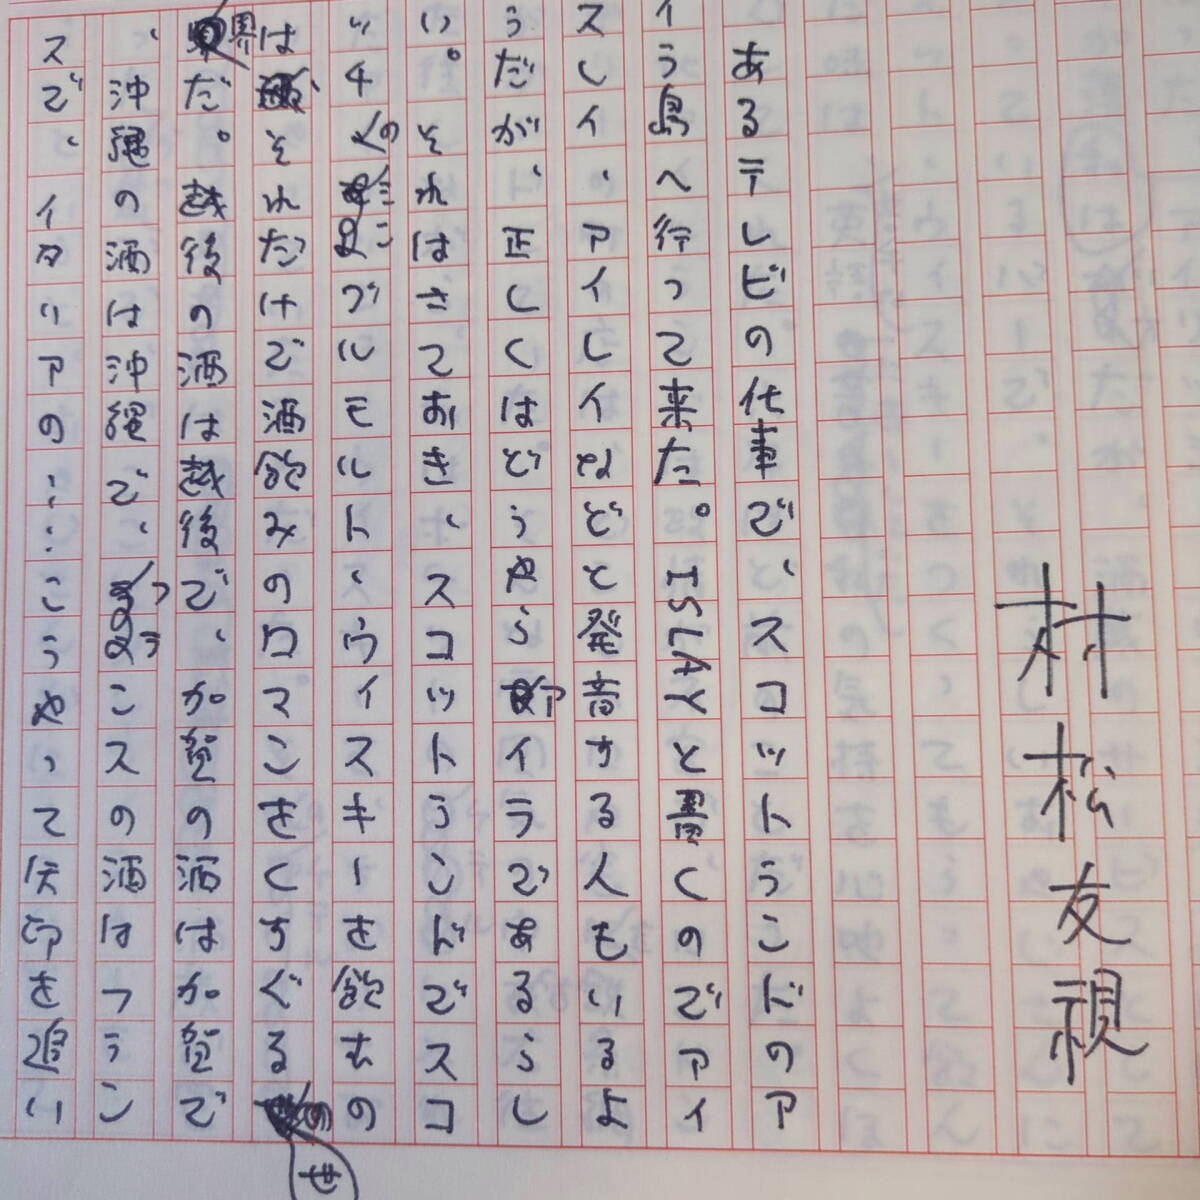 村松友視
あるテレビの仕事で、スコットランドのア
イラ島へ行って来た。ISLAYと書くのでアイ
スレイ、アイレイなどと発音する人もいるよ
うだが、正しくはどうやらアイラであるらし
い。それはさておき、スコットランドでスコ
ッチのモルト、ウイスキーを飲むの
は、それだけで酒飲みのロマンをくすぐる世
界だ。越後の酒は越後で、加賀の酒は加賀で
、沖縄の酒は沖縄で、フランスの酒はフラン
スで、イタリアの……こうやって矢印を追い